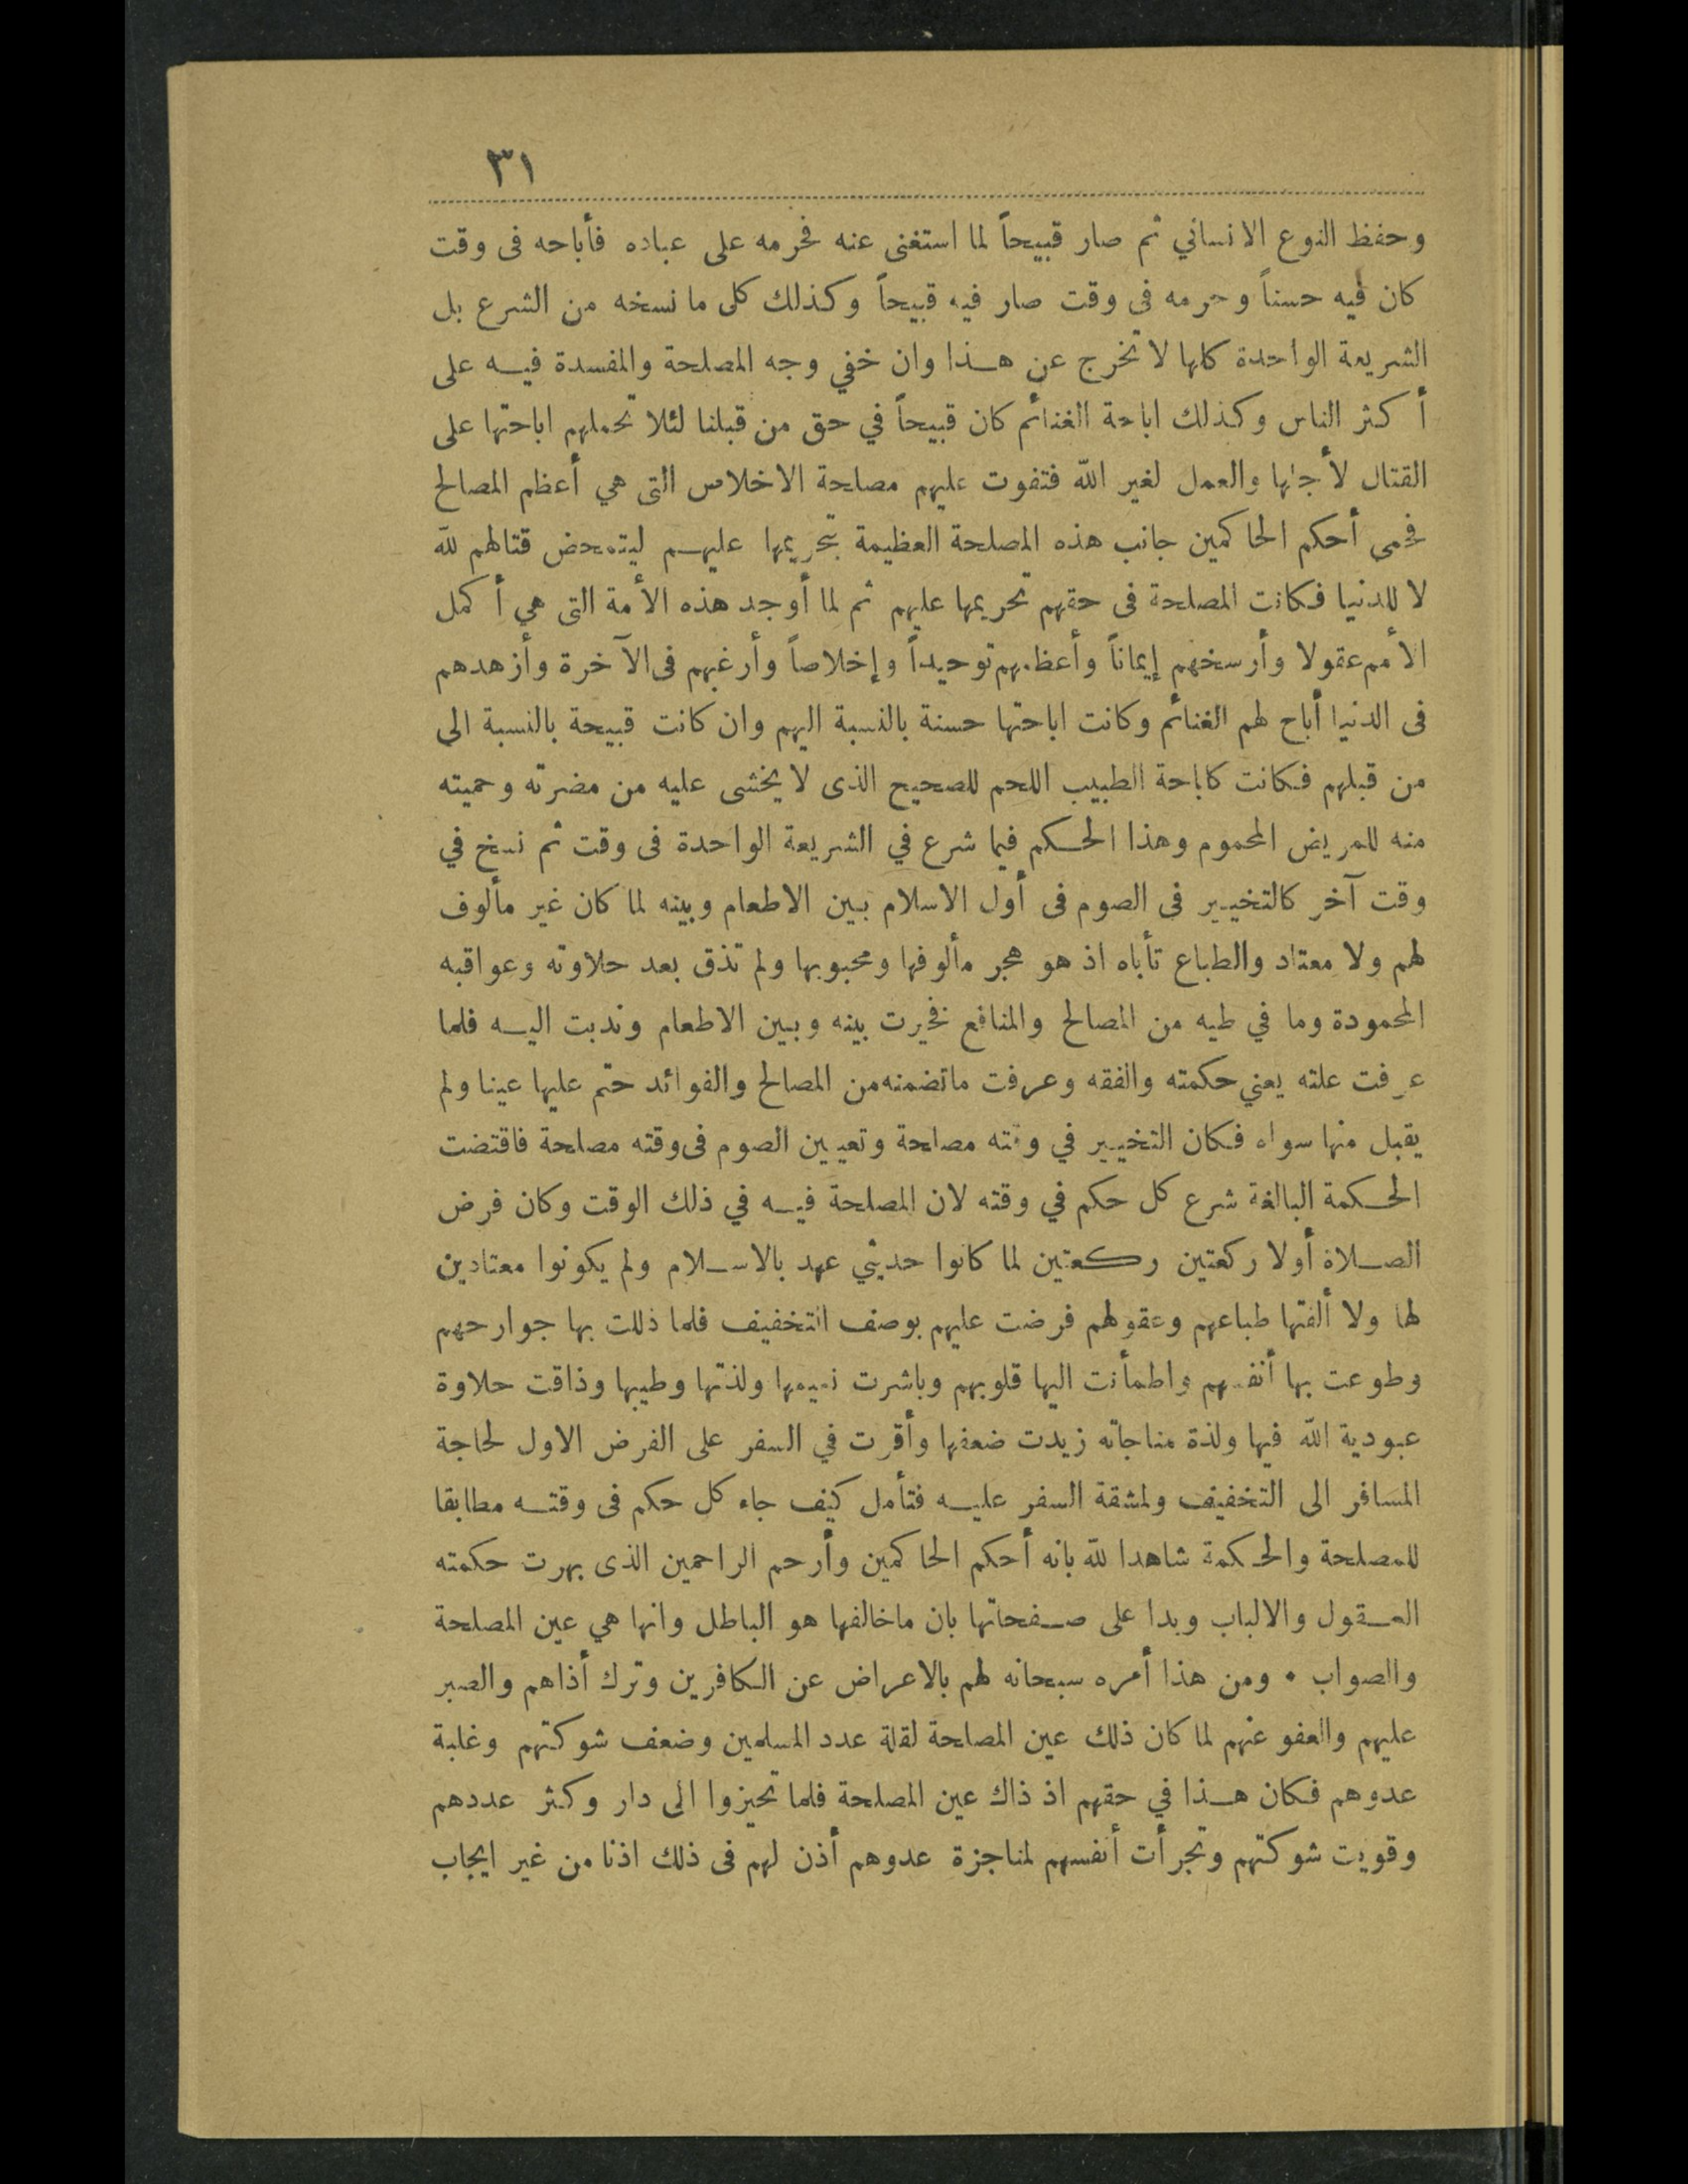 ٣١
وحفظ النوع الانساني ثم صار قبيحاً لما استغنى عنه فحرمه على عباده فأباحه فى وقت
كان فيه حسناً وحرمه فى وقت صار فيه قبيحاً وكذلك كل ما نسخه من الشرع بل
الشريعة الواحدة كلها لا تخرج عن هذا وان خفي وجه المصلحة والمفسدة فيه على
أكثر الناس وكذلك اباحة الغنائم كان قبيحاً في حق من قبلنا لئلا تحملهم اباحتها على
القتال لأجلها والعمل لغير الله فتفوت عليهم مصلحة الاخلاص التى هي أعظم المصالح
فحمى أحكم الحاكمين جانب هذه المصلحة العظيمة بتحريمها عليهم ليتمحض قتالهم لله
لا للدنيا فكانت المصلحة فى حقهم تحريمها عليهم ثم لما أوجد هذه الأمة التى هي أكمل
الأمم عقولا وأرسخهم إيماناً وأعظمهم توحيداً وإخلاصاً وأرغبهم فى الآخرة وأزهدهم
فى الدنيا أباح لهم الغنائم وكانت اباحتها حسنة بالنسبة اليهم وان كانت قبيحة بالنسبة الى
من قبلهم فكانت كاباحة الطبيب اللحم للصحيح الذى لا يخشى عليه من مضرته وحميته
منه للمريض المحموم وهذا الحكم فيما شرع في الشريعة الواحدة فى وقت ثم نسخ في
وقت آخر كالتخيير فى الصوم فى أول الاسلام بين الاطعام وبينه لما كان غير مألوف
لهم ولا معتاد والطباع تأباه اذ هو هجر مألوفها ومحبوبها ولم تذق بعد حلاوته وعواقبه
المحمودة وما في طيه من المصالح والمنافع فخيرت بينه وبين الاطعام وندبت اليه فلما
عرفت علته يعني حكمته والفقه وعرفت ماتضمنه من المصالح والفوائد حتم عليها عينا ولم
يقبل منها سواه فكان التخيير في وقته مصلحة وتعيين الصوم فى وقته مصلحة فاقتضت
الحكمة البالغة شرع كل حكم في وقته لان المصلحة فيه في ذلك الوقت وكان فرض
الصلاة أولا ركعتين ركعتين لما كانوا حديثي عهد بالاسلام ولم يكونوا معتادين
لها ولا ألفتها طباعهم وعقولهم فرضت عليهم بوصف التخفيف فلما ذللت بها جوارحهم
وطوعت بها أنفسهم واطمأنت اليها قلوبهم وباشرت نعيمها ولذتها وطيبها وذاقت حلاوة
عبودية الله فيها ولذة مناجاته زيدت ضعفها وأقرت في السفر على الفرض الاول لحاجة
المسافر الى التخفيف ولمشقة السفر عليه فتأمل كيف جاء كل حكم فى وقته مطابقا
للمصلحة والحكمة شاهدا لله بانه أحكم الحاكمين وأرحم الراحمين الذى بهرت حكمته
العقول والالباب وبدا على صفحاتها بان ماخالفها هو الباطل وانها هي عين المصلحة
والصواب • ومن هذا أمره سبحانه لهم بالاعراض عن الكافرين وترك أذاهم والصبر
عليهم والعفو عنهم لما كان ذلك عين المصلحة لقلة عدد المسلمين وضعف شوكتهم وغلبة
عدوهم فكان هذا في حقهم اذ ذاك عين المصلحة فلما تحيزوا الى دار وكثر عددهم
وقويت شوكتهم وتجرأت أنفسهم لمناجزة عدوهم أذن لهم فى ذلك اذنا من غير ايجاب